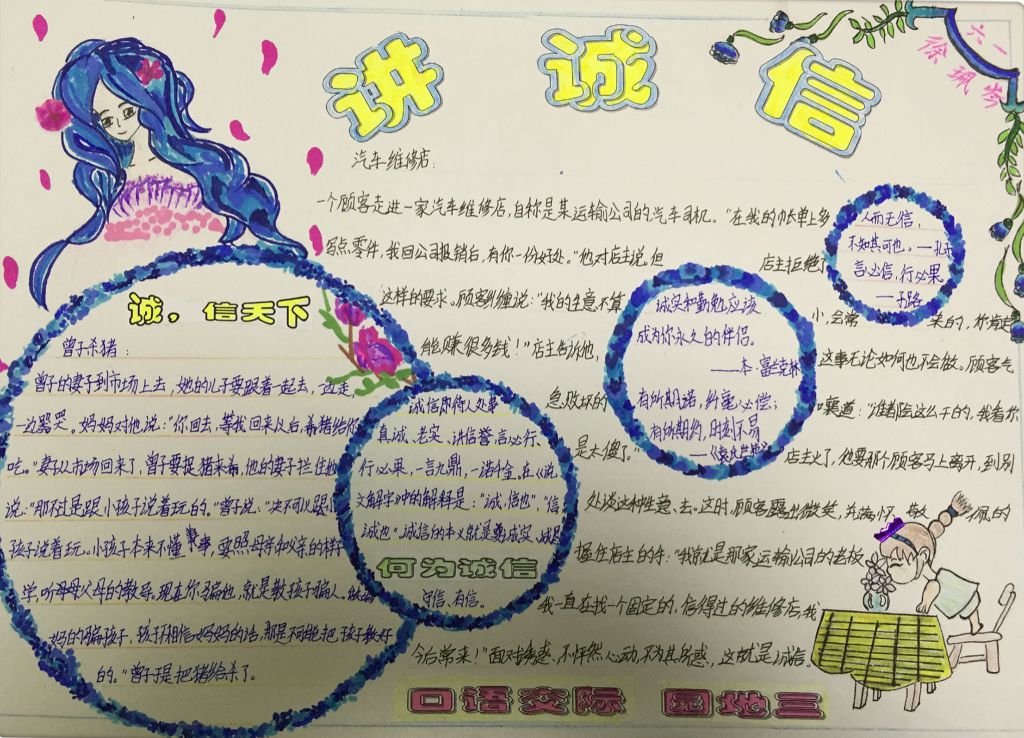 讲诚信
六一
徐珮岑
汽车维修店：
一个顾客走进一家汽车维修店，自称是某运输公司的汽车司机。“在我的帐单上多
写点零件，我回公司报销后，有你一份好处。”他对店主说。但
店主拒绝了
这样的要求。顾客纠缠说：“我的生意不算
小，会常
来的，你肯定
能赚很多钱！”店主告诉他，
这事无论如何也不会做。顾客气
急败坏的
嚷道：“谁都会这么干的，我看你
是太傻了。”
店主火了，他要那个顾客马上离开，到别
处谈这种生意、去。这时，顾客露出微笑，充满怀
敬
佩的
握住店主的手：“我就是那家运输公司的老板
我一直在找一个固定的，信得过的维修店，我
今后常来！”面对诱惑，不怦然心动，不为其所惑，这就是诚信。
人而无信，
不知其可也。——孔子
言必信，行必果。
——子路
诚实和勤勉应该
成为你永久的伴侣。
——本·富兰克林
有所期诺，纤毫必偿；
有所期约，时刻不易
诚，信天下
曾子杀猪：
曾子的妻子到市场上去，她的儿子要跟着一起去，边走，
一边哭。妈妈对他说：“你回去，等我回来以后，杀猪给你
吃。”妻从市场回来了，曾子要捉猪来杀，他的妻子拦住他
说：“那不过是跟小孩子说着玩的。”曾子说：“决不可以跟小
孩子说着玩。小孩子本来不懂事，要照母亲和父亲的样
学，听母母父母的教导。现在你骗他，就是教孩子骗人。做妈
妈的骗孩子，孩子不相信妈妈的话，那是不可能把孩子教好
的。”曾子于是把猪给杀了。
诚信即待人处事
真诚、老实、讲信誉，言必行、
行必果，一言九鼎，一诺千金，在《说
文解字》中的解释是：“诚，信也”，“信，
诚也”。诚信的本义就是要诚实、诚恳
守信、有信。
何为诚信
口语交际 园地三